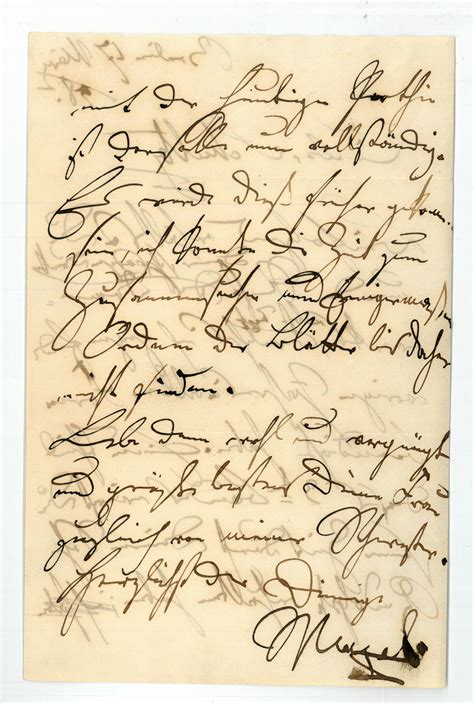 mit der heutigen Parthie
ist derselbe nun vollständig.
Es würde dieß früher gekom-
sein, ich konnte die Zeit zum
Zusammensuchen und einigermaßen
Ordnen der Blätter bis daher
nicht finden.
Lebe denn wohl und vergnügt
und grüße bestens Deine Frau
zugleich von meiner Schwester.
Herzlichst der Deinige